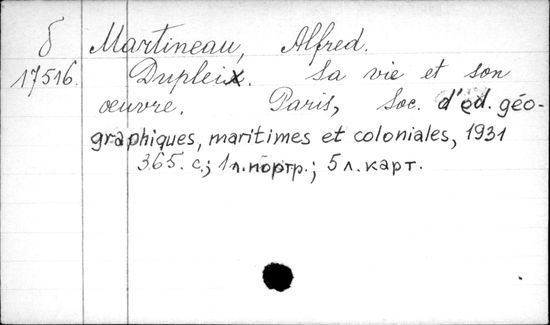 б Martineau, Alfred.
17516. Dupleix. Sa vie et son
œuvre. Paris, Soc. d'ed. géo-
graphiques, maritimes et coloniales, 1931
365. с.; 1 л. портр.; 5 л. карт.